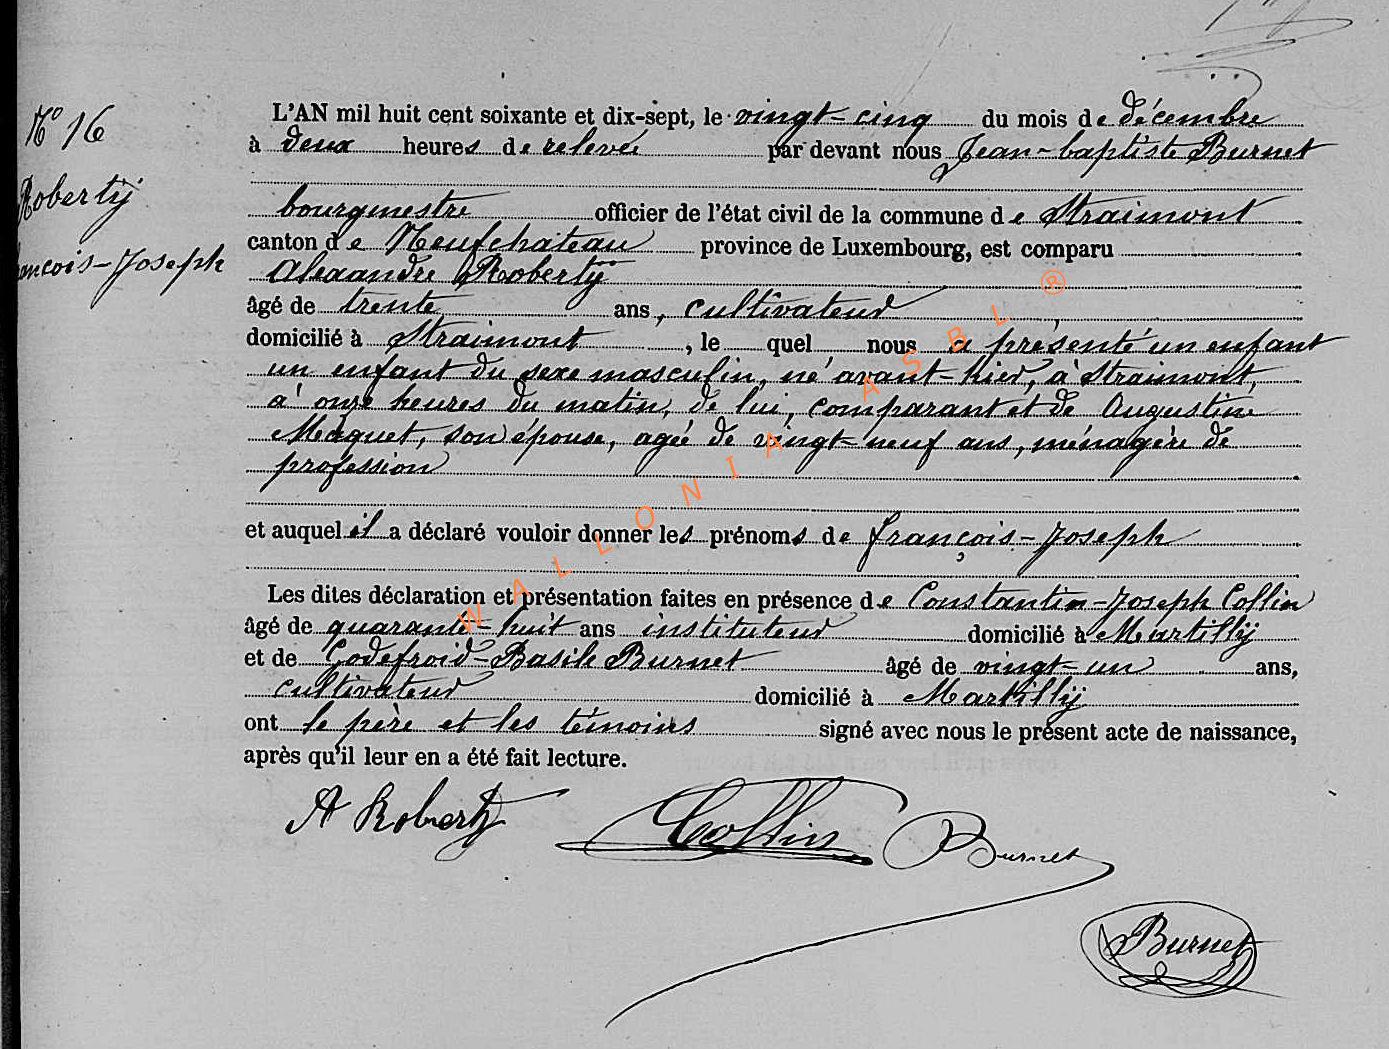 N° 16
Roberty
François-Joseph
L'AN mil huit cent soixante et dix-sept, le vingt-cinq du mois de décembre
à deux heures de relevée par devant nous Jean-baptiste Burnet
bourgmestre officier de l'état civil de la commune de Straimont
canton de Neufchateau province de Luxembourg, est comparu
Alexandre Roberty
âgé de trente ans, cultivateur
domicilié à Straimont, le quel nous a présenté un enfant
un enfant du sexe masculin, né avant-hier, à Straimont,
à onze heures du matin, de lui, comparant et de Augustine
Maquet, son épouse, agée de vingt-neuf ans, ménagère de
profession
et auquel il a déclaré vouloir donner les prénoms de françois-Joseph
Les dites déclaration et présentation faites en présence de Constantin-Joseph Collin
âgé de quarante-huit ans instituteur domicilié à Martilly
et de Godefroid-Basile Burnet âgé de vingt-un ans,
cultivateur domicilié à Martilly
ont le père et les témoins signé avec nous le présent acte de naissance,
après qu'il leur en a été fait lecture.
A Roberty Collin Burnet
Burnet
WALLONIA ASBL ®